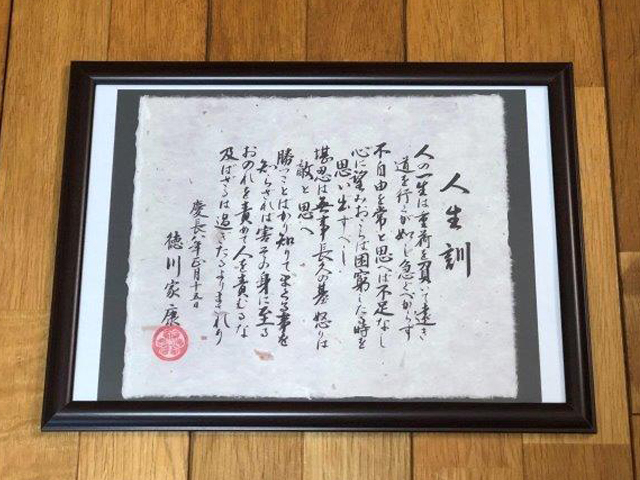 人生訓
人の一生は重荷を負て遠き
道を行くが如し急ぐべからず
不自由を常と思へば不足なし
心に望みおこらば困窮したる時を
思い出すべし
堪忍は無事長久の基怒りは
敵と思へ
勝つことばかり知りてまくる事を
知らざれば害その身に至る
おのれを責めて人を責むるな
及ばざるは過ぎたるよりまされり
慶長八年正月十五日
徳川家康